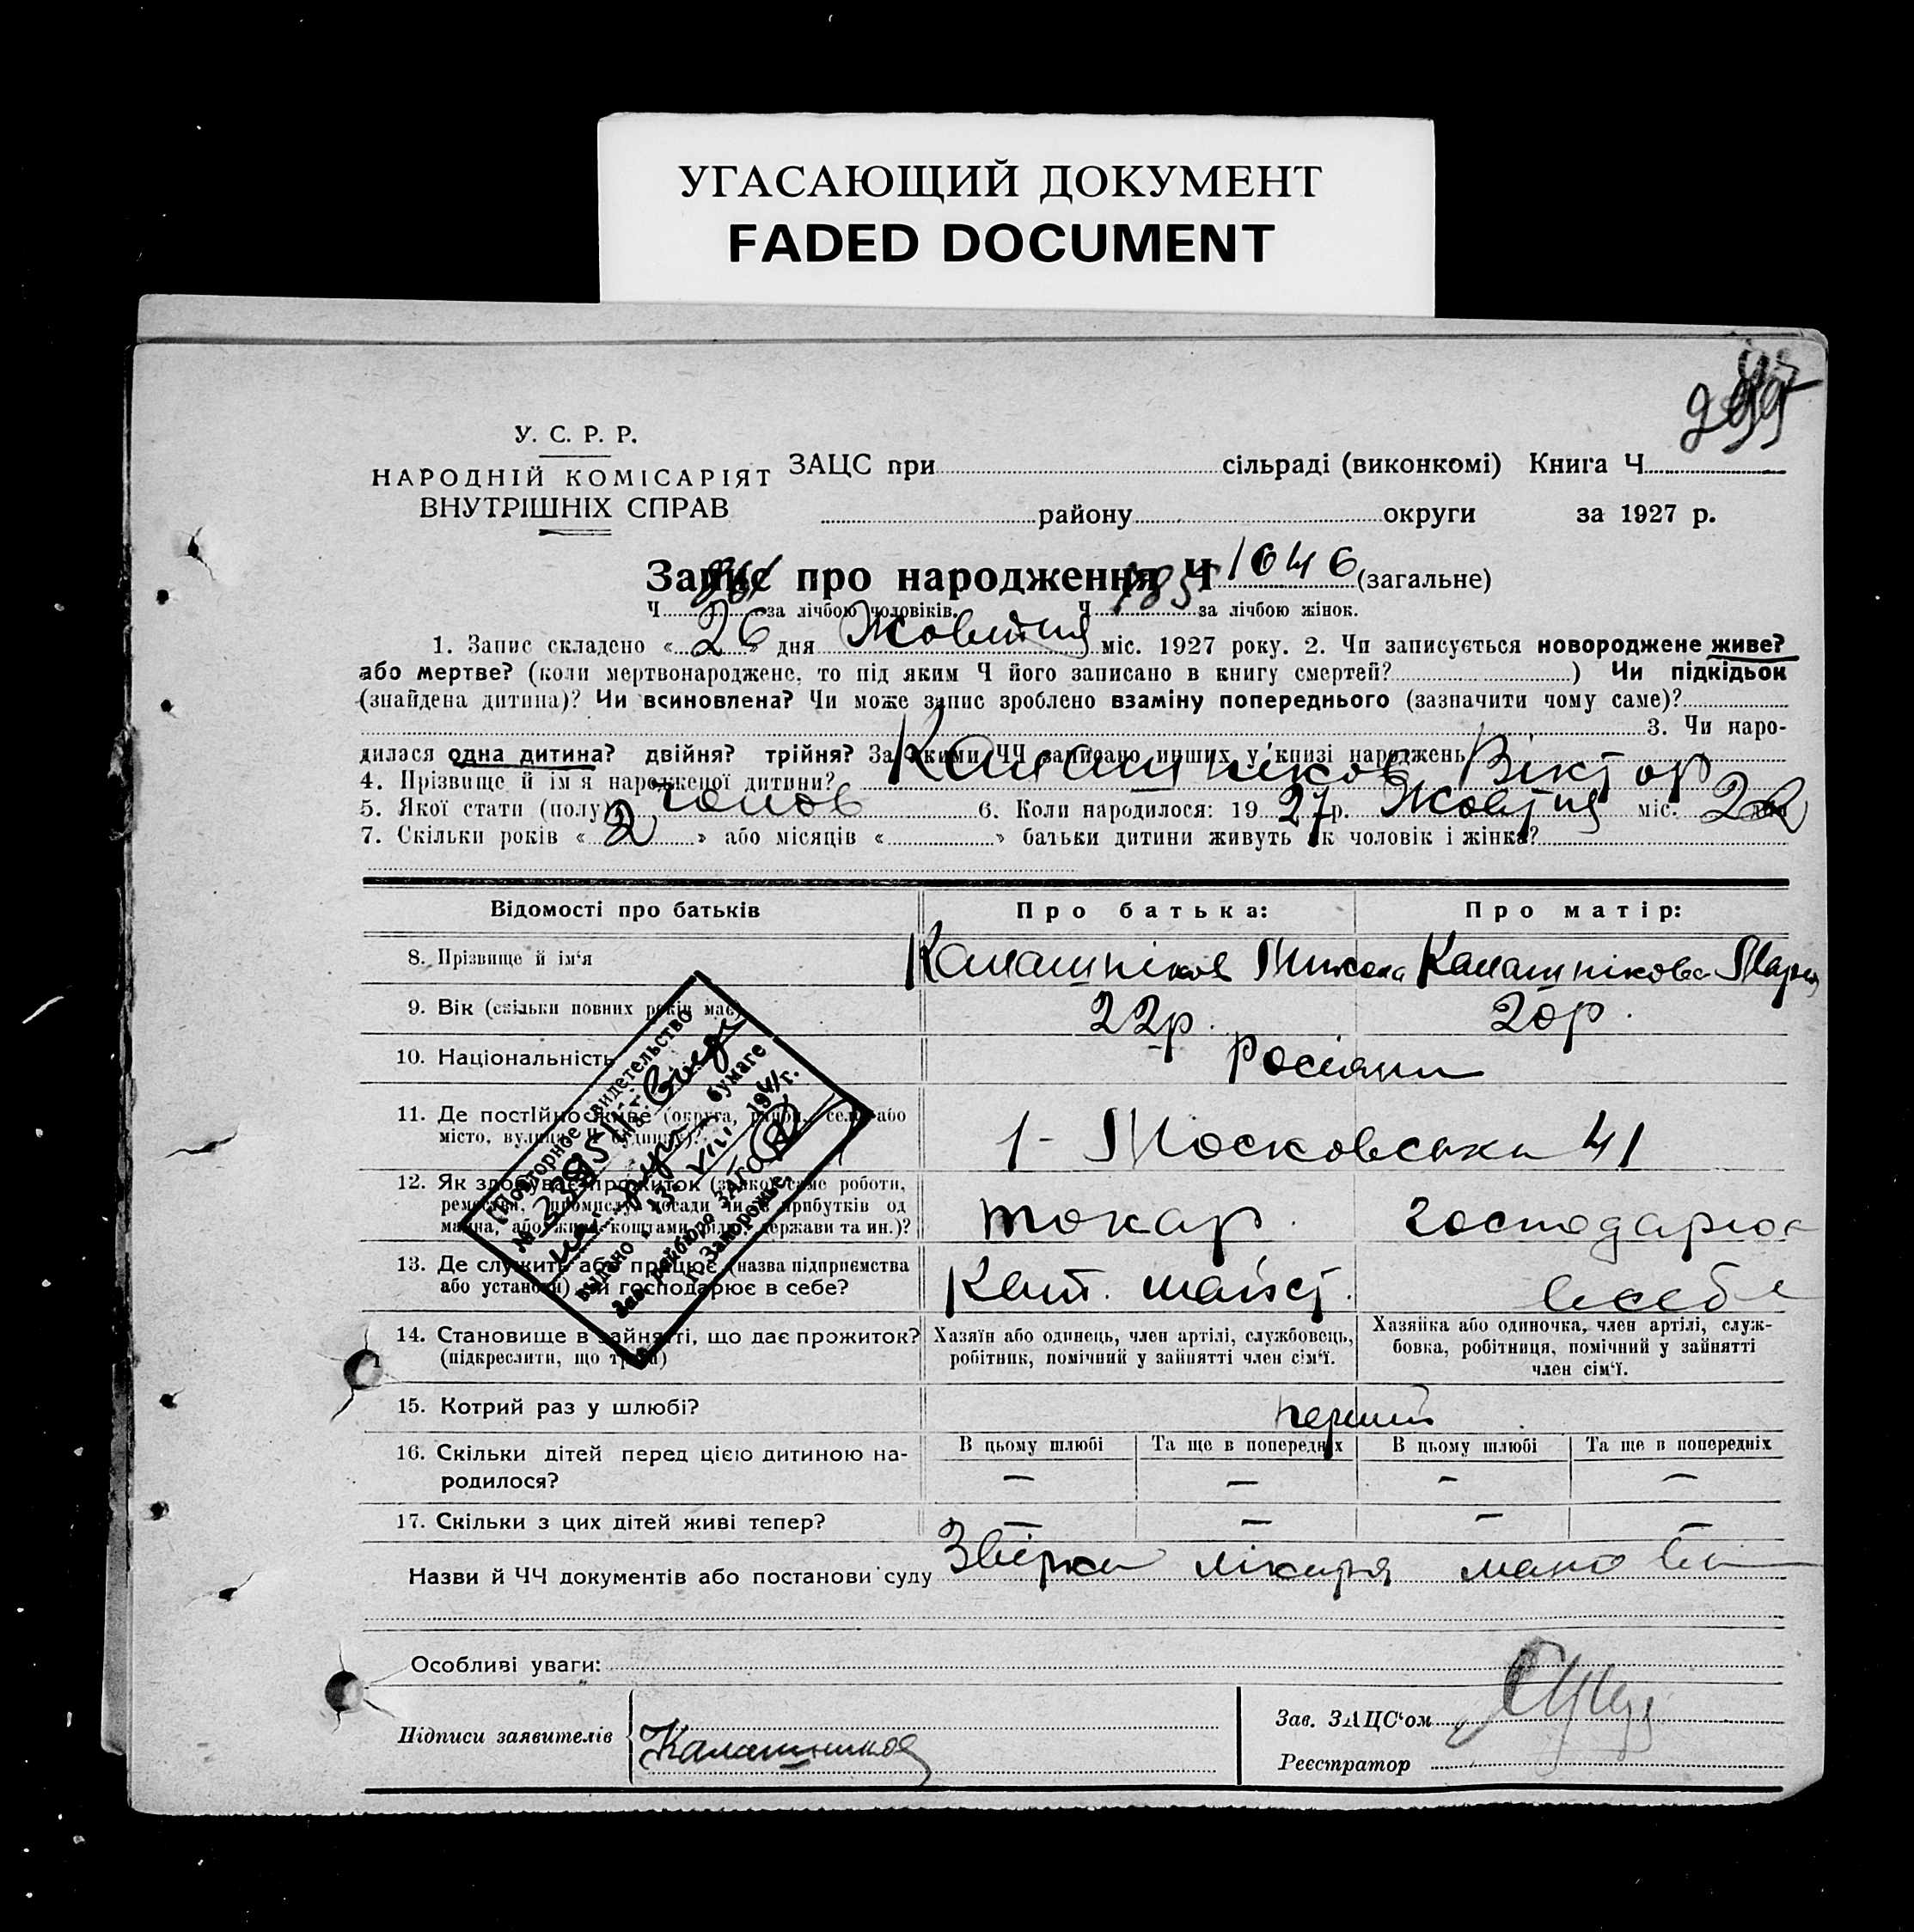 УГАСАЮЩИЙ ДОКУМЕНТ
FADED DOCUMENT
У. С. Р. Р.
НАРОДНІЙ КОМІСАРІЯТ
ВНУТРІШНІХ СПРАВ
ЗАЦС при сільраді (виконкомі) Книга Ч.
району округи за 1927 р.
Запис про народження Ч 1046 (загальне)
Ч за лічбою чоловіків. Ч за лічбою жінок.
1. Запис складено « 26 » дня Жовтня міс. 1927 року. 2. Чи записується новороджене живе?
або мертве? (коли мертвонароджене, то під яким Ч його записано в книгу смертей? ) Чи підкідьок
(знайдена дитина)? Чи всиновлена? Чи може запис зроблено взаміну попереднього (зазначити чому саме)?
3. Чи наро-
дилася одна дитина? двійня? трійня? За якими ЧЧ записано инших у книзі народжень
4. Прізвище й ім'я народженої дитини? Калашніков Віктор
5. Якої стати (полу) чолов 6. Коли народилося: 19 27 р. Жовтня міс.
7. Скільки років « 2 » або місяців « » батьки дитини живуть як чоловік і жінка?
Відомості про батьків Про батька: Про матір:
8. Прізвище й ім'я Калашніков Микола Калашнікова Марія
9. Вік (скільки повних років має) 22р. 20р.
10. Національність Росіяни
11. Де постійно живе (округа, район, село або
місто, вулиця й будинок)? 1- Московська 41
12. Як здобуває прожиток (з якої саме роботи,
ремества, промислу, посади чи з прибутків од
майна, або живе коштами рідні, держави та ин.)? токар. господарює
13. Де служить або працює (назва підприємства
або установи) чи господарює в себе? майст. в себе
14. Становище в зайнятті, що дає прожиток?
(підкреслити, що треба)
Хазяїн або одинець, член артілі, службовець,
робітник, помічний у зайнятті член сім'ї.
Хазяйка або одиночка, член артілі, служ-
бовка, робітниця, помічний у зайнятті
член сім'ї.
15. Котрий раз у шлюбі? перший
16. Скільки дітей перед цією дитиною на-
родилося?
В цьому шлюбі Та ще в попередніх В цьому шлюбі Та ще в попередніх
— — — —
17. Скільки з цих дітей живі тепер? — — — —
Назви й ЧЧ документів або постанови суду лікаря
Особливі уваги:
Підписи заявителів Калашников
Зав. ЗАЦС'ом
Реєстратор
Повторное свидетельство
№
бумаге
выдано 13 VIII 194 г.
Зав. райбюро ЗАГС
г. Запорожье